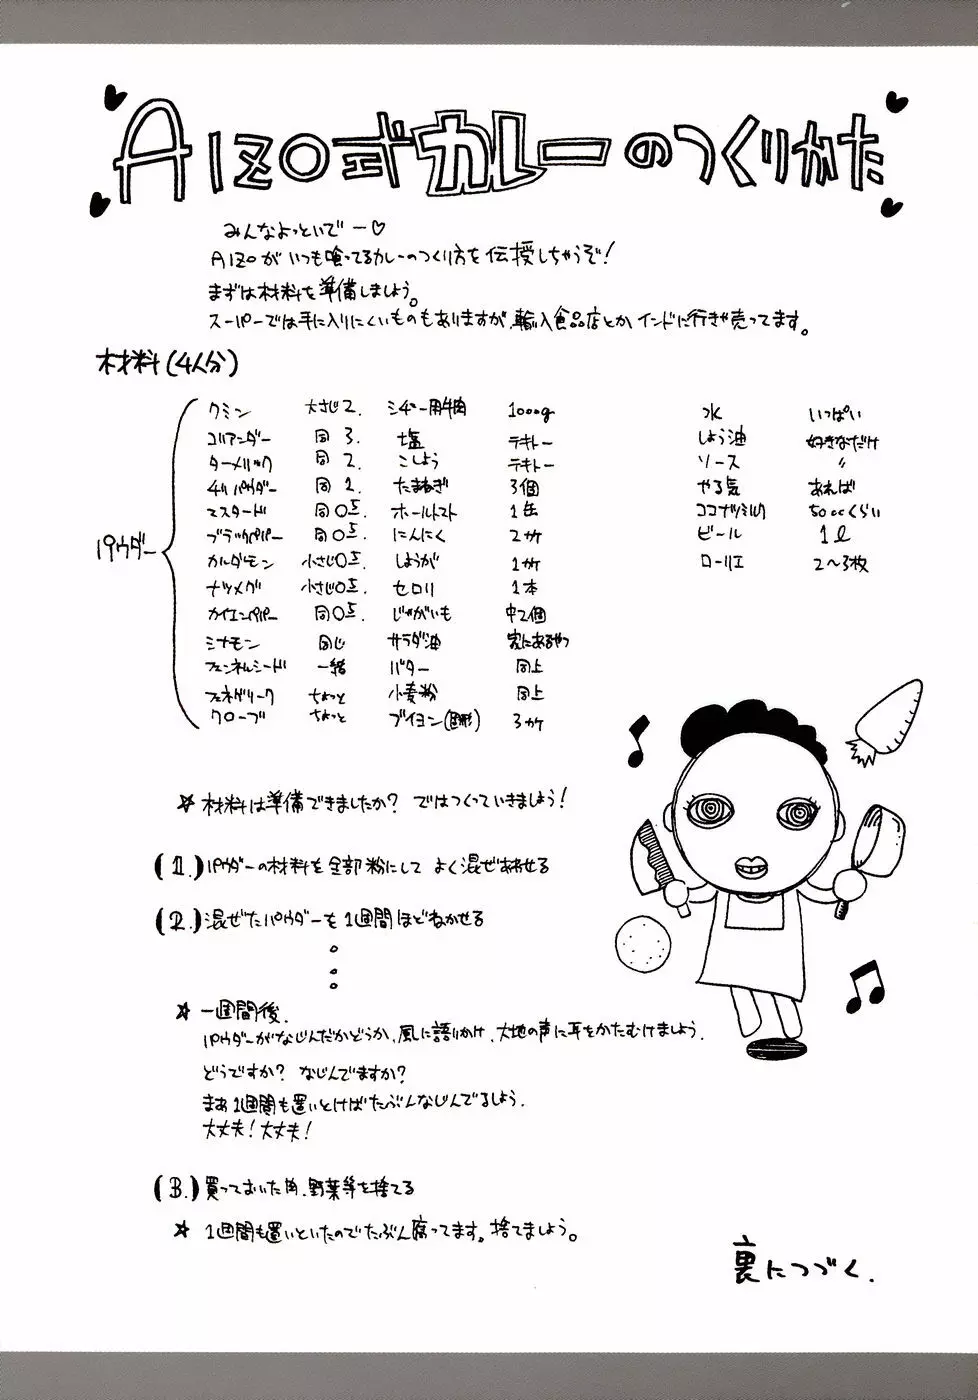 AIZO式カレーのつくりかた
みんなよっといでー♡
AIZOがいつも喰ってるカレーのつくり方を伝授しちゃうぞ!
まずは材料を準備しましょう。
スーパーでは手に入りにくいものもありますが、輸入食品店とかインドに行きゃ売ってます。
材料(4人分)
パウダー
クミン 大さじ2.
コリアンダー 同 3.
ターメリック 同 2.
チリパウダー 同 1.
マスタード 同 0.5.
ブラックペパー 同 0.5.
カルダモン 小さじ0.5.
ナツメグ 小さじ0.5.
カイエンペパー 同 0.5.
シナモン 同じ
フェンネルシード 一緒
フェネグリーク ちょっと
クローブ ちょっと
シチュー用牛肉 1000g
塩 テキトー
こしょう テキトー
たまねぎ 3個
ホールトマト 1缶
にんにく 2ケ
しょうが 1ケ
セロリ 1本
じゃがいも 中2個
サラダ油 家にあるやつ
バター 同上
小麦粉 同上
ブイヨン(固形) 3ケ
水 いっぱい
しょう油 好きなだけ
ソース 〃
やる気 あれば
ココナツミルク 500ccくらい
ビール 1ℓ
ローリエ 2〜3枚
☆ 材料は準備できましたか? ではつくっていきましょう!
(1.) パウダーの材料を全部粉にして よく混ぜあわせる
(2.) 混ぜたパウダーを1週間ほどねかせる
☆ 一週間後.
パウダーがなじんだかどうか、風に語りかけ、大地の声に耳をかたむけましょう.
どうですか? なじんでますか?
まあ1週間も置いとけばたぶんなじんでるしょう.
大丈夫!大丈夫!
(3.) 買っておいた肉、野菜等を捨てる
☆ 1週間も置いといたのでたぶん腐ってます。捨てましょう。
裏につづく.